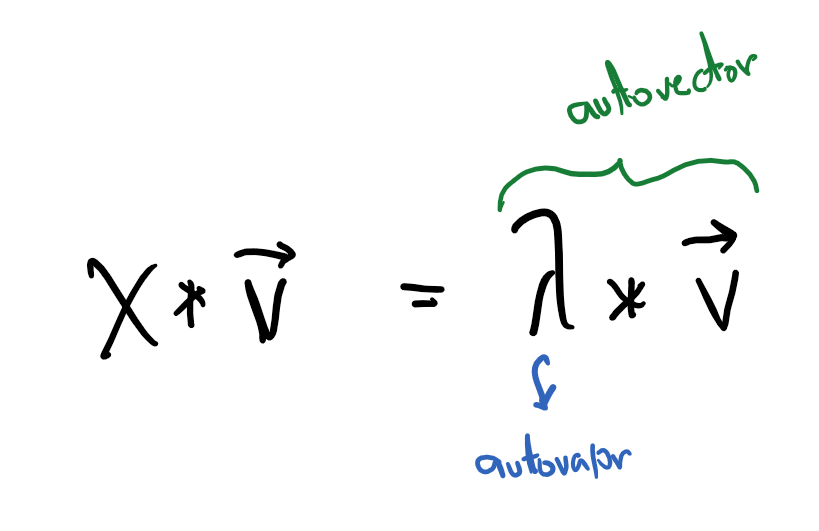 autovector
X * v⃗ = λ * v⃗
autovalor